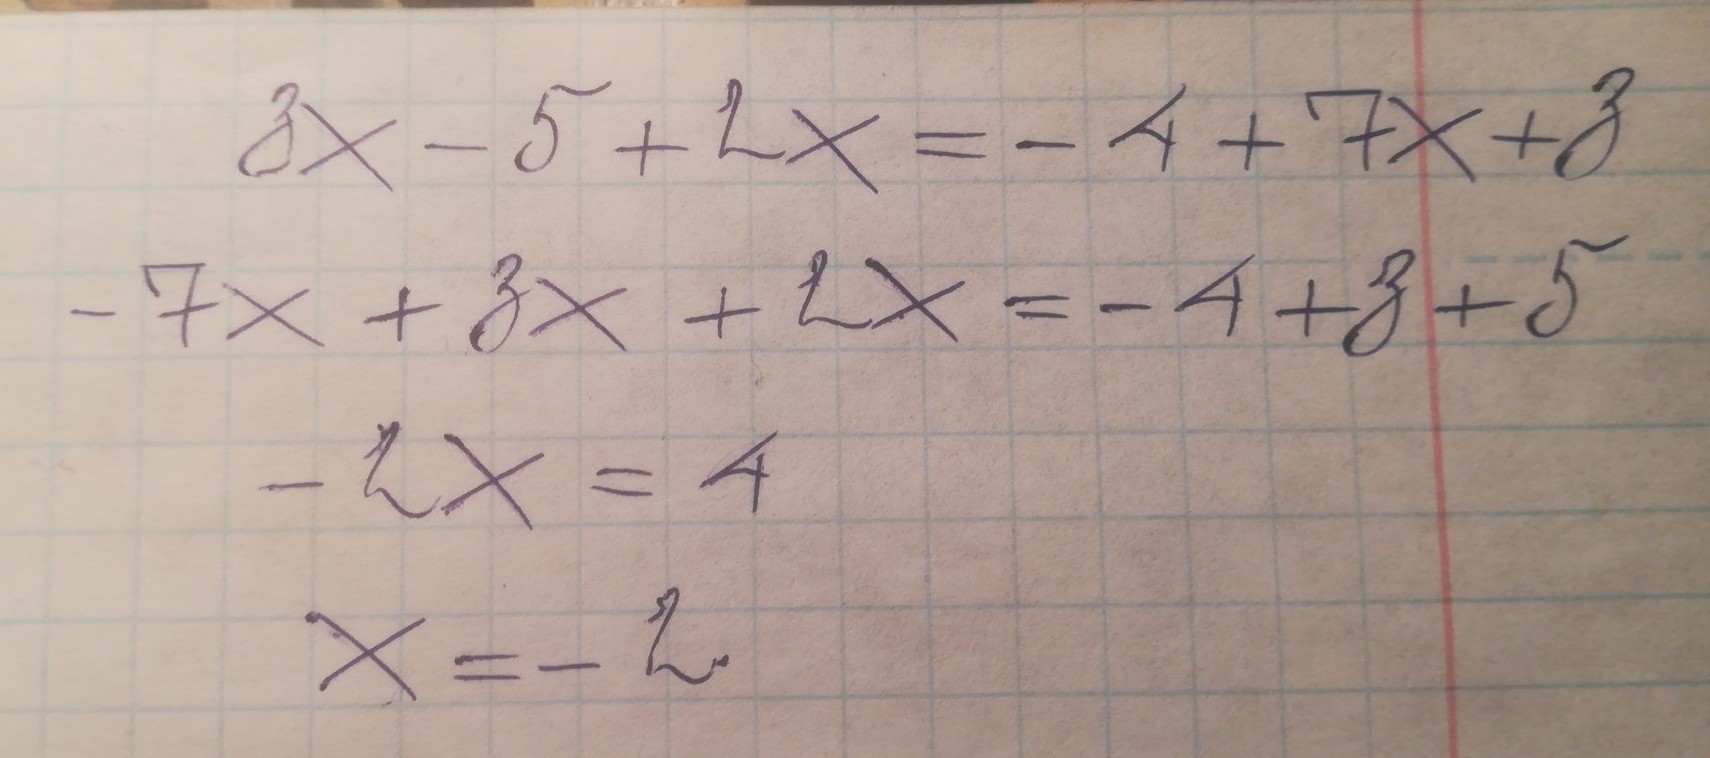 3x - 5 + 2x = - 4 + 7x + 3
- 7x + 3x + 2x = - 4 + 3 + 5
- 2x = 4
x = - 2